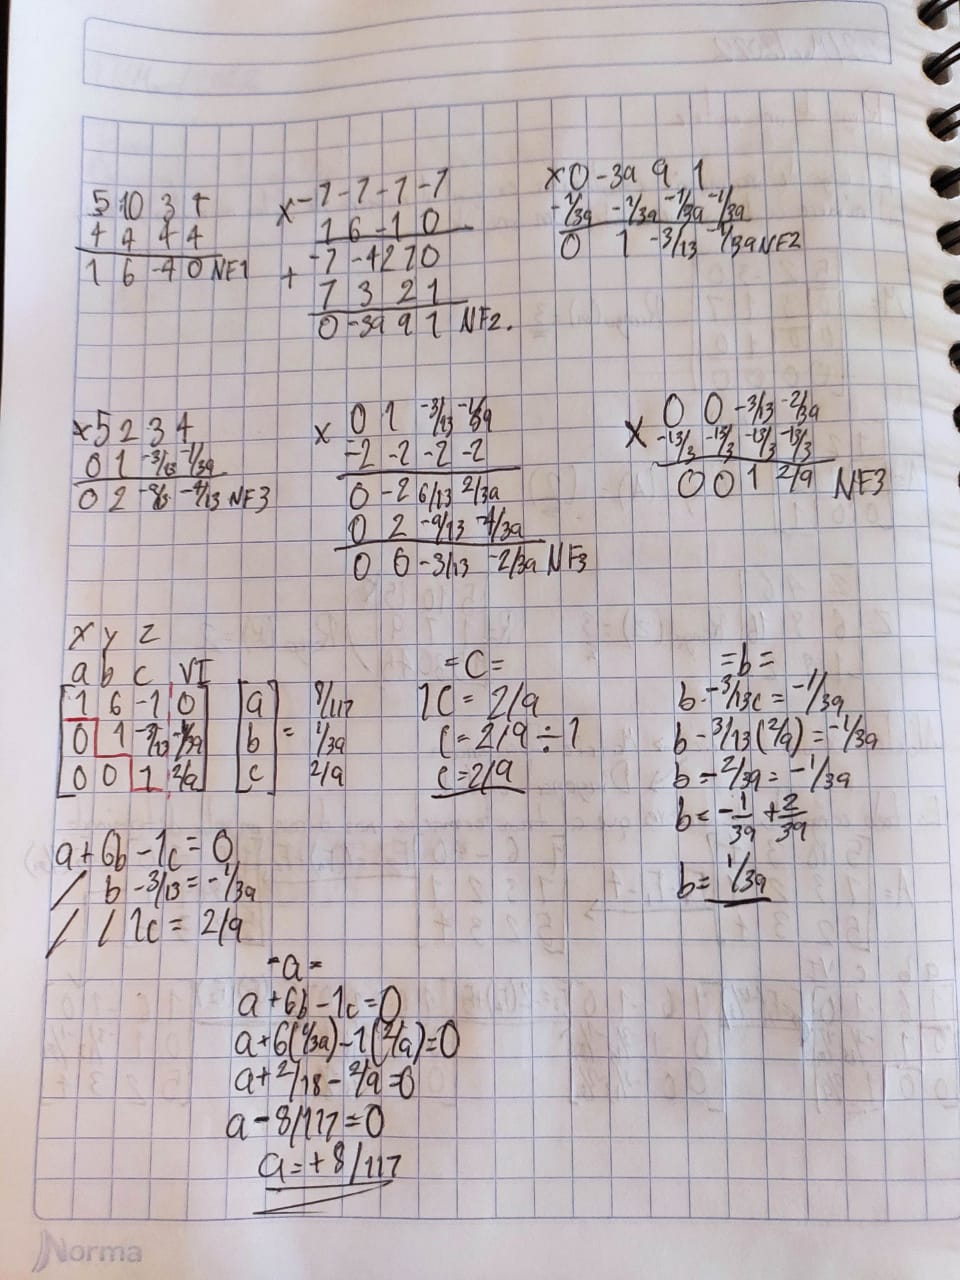 5 10 3 4
4 4 4 4
1 6 -4 0 NF1
x -7 -7 -7 -7
1 6 -1 0
+ -7 -42 7 0
7 3 2 1
0 -39 9 1 NF2.
x 0 -39 9 1
-1/39 -1/39 -1/39 -1/39
0 1 -3/13 -1/39 NF2
x 5 2 3 4
0 1 -3/13 -1/39
0 2 NF3
x 0 1 -3/13 -1/39
-2 -2 -2 -2
0 -2 6/13 2/39
0 2 -9/13 -4/39
0 0 -3/13 -2/39 NF3
x 0 0 -3/13 -2/39
-13/3 -13/3 -13/3 -13/3
0 0 1 2/9 NF3
x y z
a b c VI
1 6 -1 0 [a] 8/117
0 1 -3/13 -1/39 [b] = 1/39
0 0 1 2/9 [c] 2/9
= C =
1C = 2/9
C = 2/9 ÷ 1
C = 2/9
= b =
b -3/13c = -1/39
b -3/13(2/9) = -1/39
b = -2/39 = -1/39
b = -1/39 + 2/39
b = 1/39
a + 6b - 1c = 0
/ b -3/13 = -1/39
/ / 1c = 2/9
- a =
a + 6b - 1c = 0
a + 6(1/39) - 1(2/9) = 0
a + 2/18 - 2/9 = 0
a - 8/117 = 0
a = + 8/117
Norma